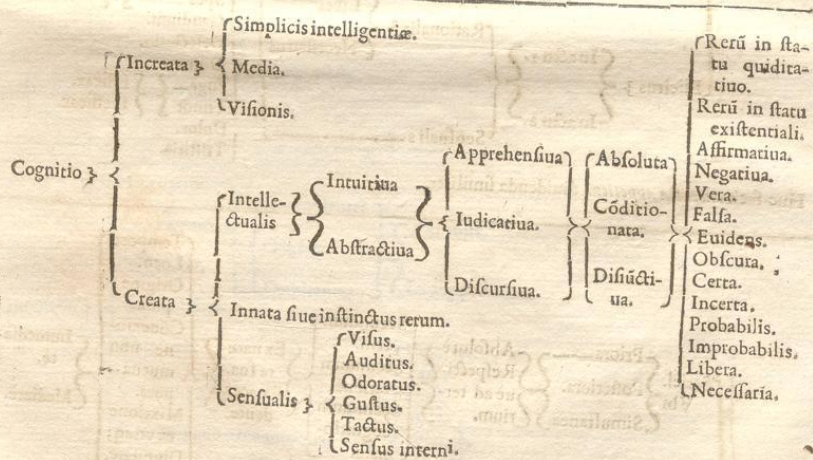 Cognitio
Increata
Simplicis intelligentiæ.
Media.
Viſionis.
Creata
Intelle-
ctualis
Intuitiua
Abſtractiua
Apprehenſiua
Iudicatiua.
Diſcurſiua.
Abſoluta
Cōditio-
nata.
Diſiūcti-
ua.
Rerū in ſta-
tu quidita-
tiuo.
Rerū in ſtatu
exiſtentiali.
Affirmatiua.
Negatiua.
Vera.
Falſa.
Euidens.
Obſcura.
Certa.
Incerta.
Probabilis.
Improbabilis.
Libera.
Neceſſaria.
Innata ſiue inſtinctus rerum.
Senſualis
Viſus.
Auditus.
Odoratus.
Guſtus.
Tactus.
Senſus interni.